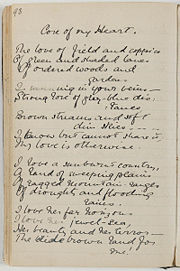 93
Core of my Heart.
The love of field and coppice
Of green and shaded lanes
Of ordered woods and
gardens
Is running in your veins —
Strong love of grey-blue dis-
tances
Brown streams and soft
dim skies
I know but cannot share it
My love is otherwise.
I love a sunburnt country,
A land of sweeping plains
Of ragged mountain ranges
Of droughts and flooding
rains.
I love her far horizons
I love her jewel-sea,
Her beauty and her terror
The wide brown land for
me!